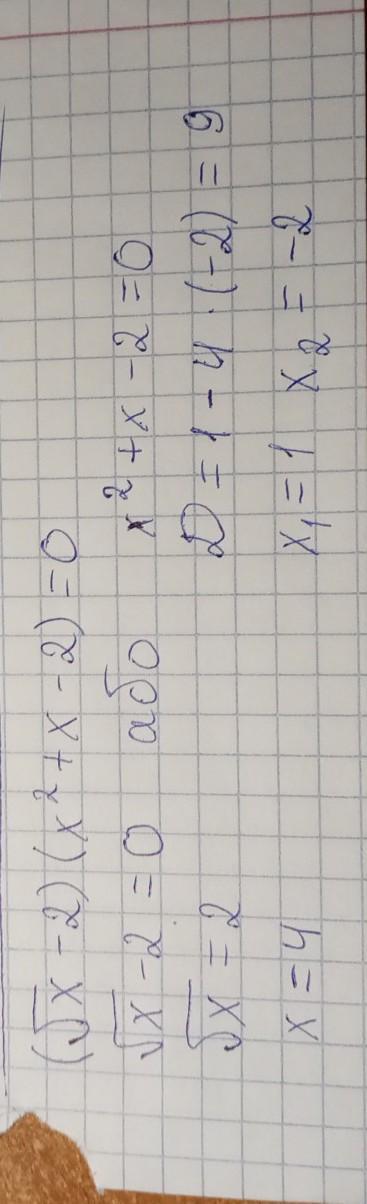 (√x - 2)(x² + x - 2) = 0
√x - 2 = 0 або x² + x - 2 = 0
√x = 2 D = 1 - 4 · (-2) = 9
x = 4 x₁ = 1 x₂ = -2